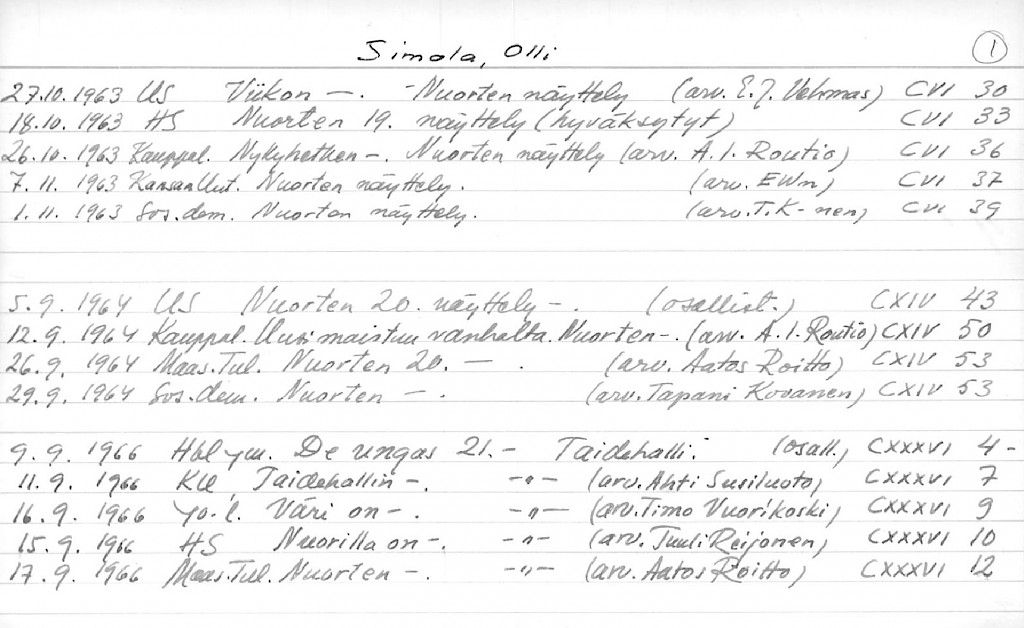 Simola, Olli 1
27.10.1963 US Viikon —. - Nuorten näyttely (arv. E.J. Vehmas) CVI 30
18.10.1963 HS Nuorten 19. näyttely (hyväksytyt) CVI 33
26.10.1963 Kauppal. Nykyhetken -. Nuorten näyttely (arv. A.I. Routio) CVI 36
7.11.1963 KansanUut. Nuorten näyttely. (arv. EWm) CVI 37
1.11.1963 Sos.dem. Nuorten näyttely. (arv. T.K-nen) CVI 39
5.9.1964 US Nuorten 20. näyttely -. (osallist.) CXIV 43
12.9.1964 Kauppal. Uusi maistuu vanhalta. Nuorten -. (arv. A.I. Routio) CXIV 50
26.9.1964 Maas.Tul. Nuorten 20. —. (arv. Aatos Roitto) CXIV 53
29.9.1964 Sos.dem. Nuorten -. (arv. Tapani Kovanen) CXIV 53
9.9.1966 Hbl ym. De ungas 21.- Taidehalli. (osall.) CXXXVI 4-
11.9.1966 KU, Taidehallin -. -"- (arv. Ahti Susiluoto) CXXXVI 7
16.9.1966 Yo-l. Väri on -. -"- (arv. Timo Vuorikoski) CXXXVI 9
15.9.1966 HS Nuorilla on -. -"- (arv. Tuuli Reijonen) CXXXVI 10
17.9.1966 Maas.Tul. Nuorten -. -"- (arv. Aatos Roitto) CXXXVI 12